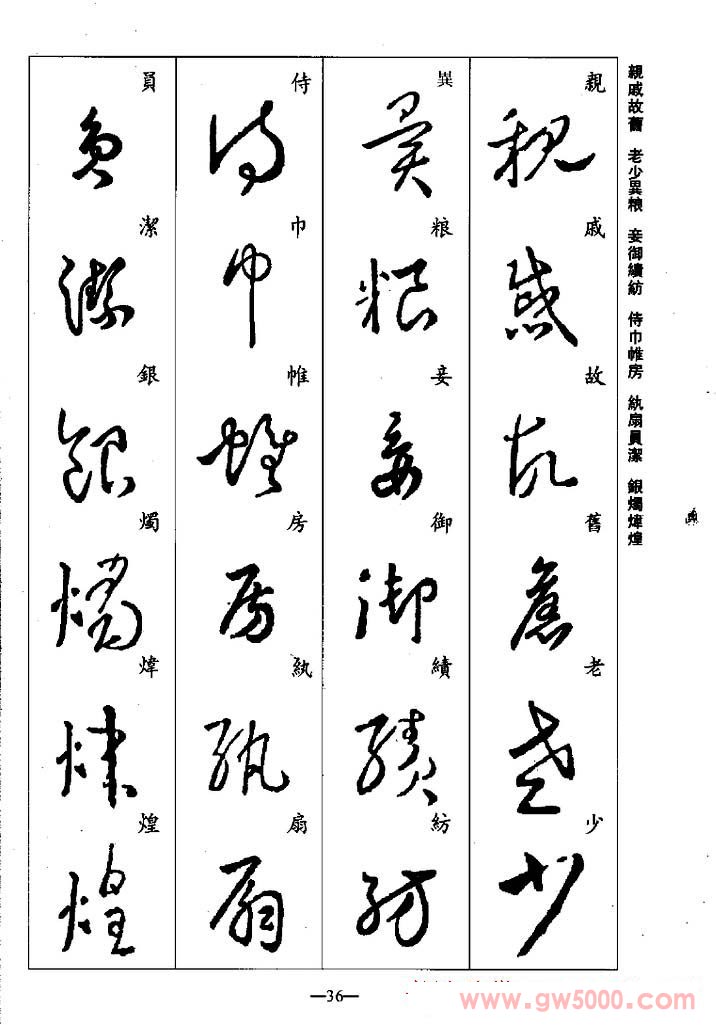 親戚故舊 老少異粮 妾御績紡 侍巾帷房 紈扇員潔 銀燭煒煌
親戚故舊老少
異粮妾御績紡
侍巾帷房紈扇
員潔銀燭煒煌
—36—
www.gw5000.com